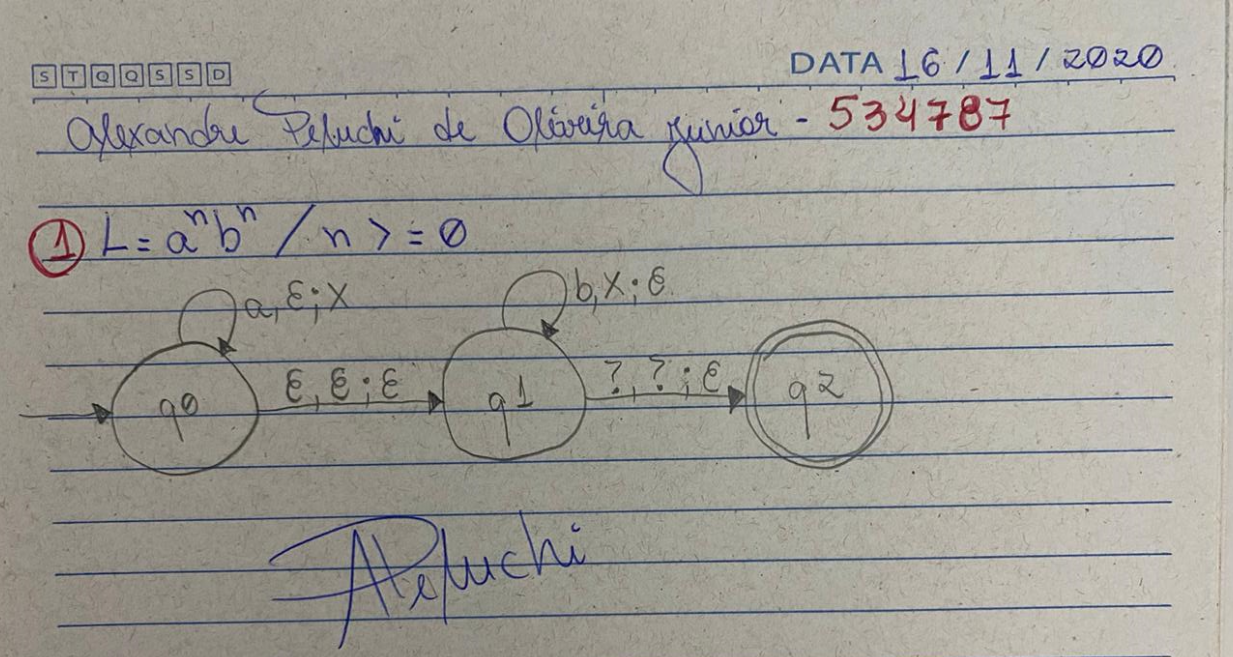 S T Q Q S S D DATA 16/11/2020
Alexandre Peluchi de Oliveira Junior - 534787
① L = aⁿbⁿ / n >= 0
a, ε; X b, X; ε
q0 ε, ε; ε q1 ?, ?; ε q2
APeluchi